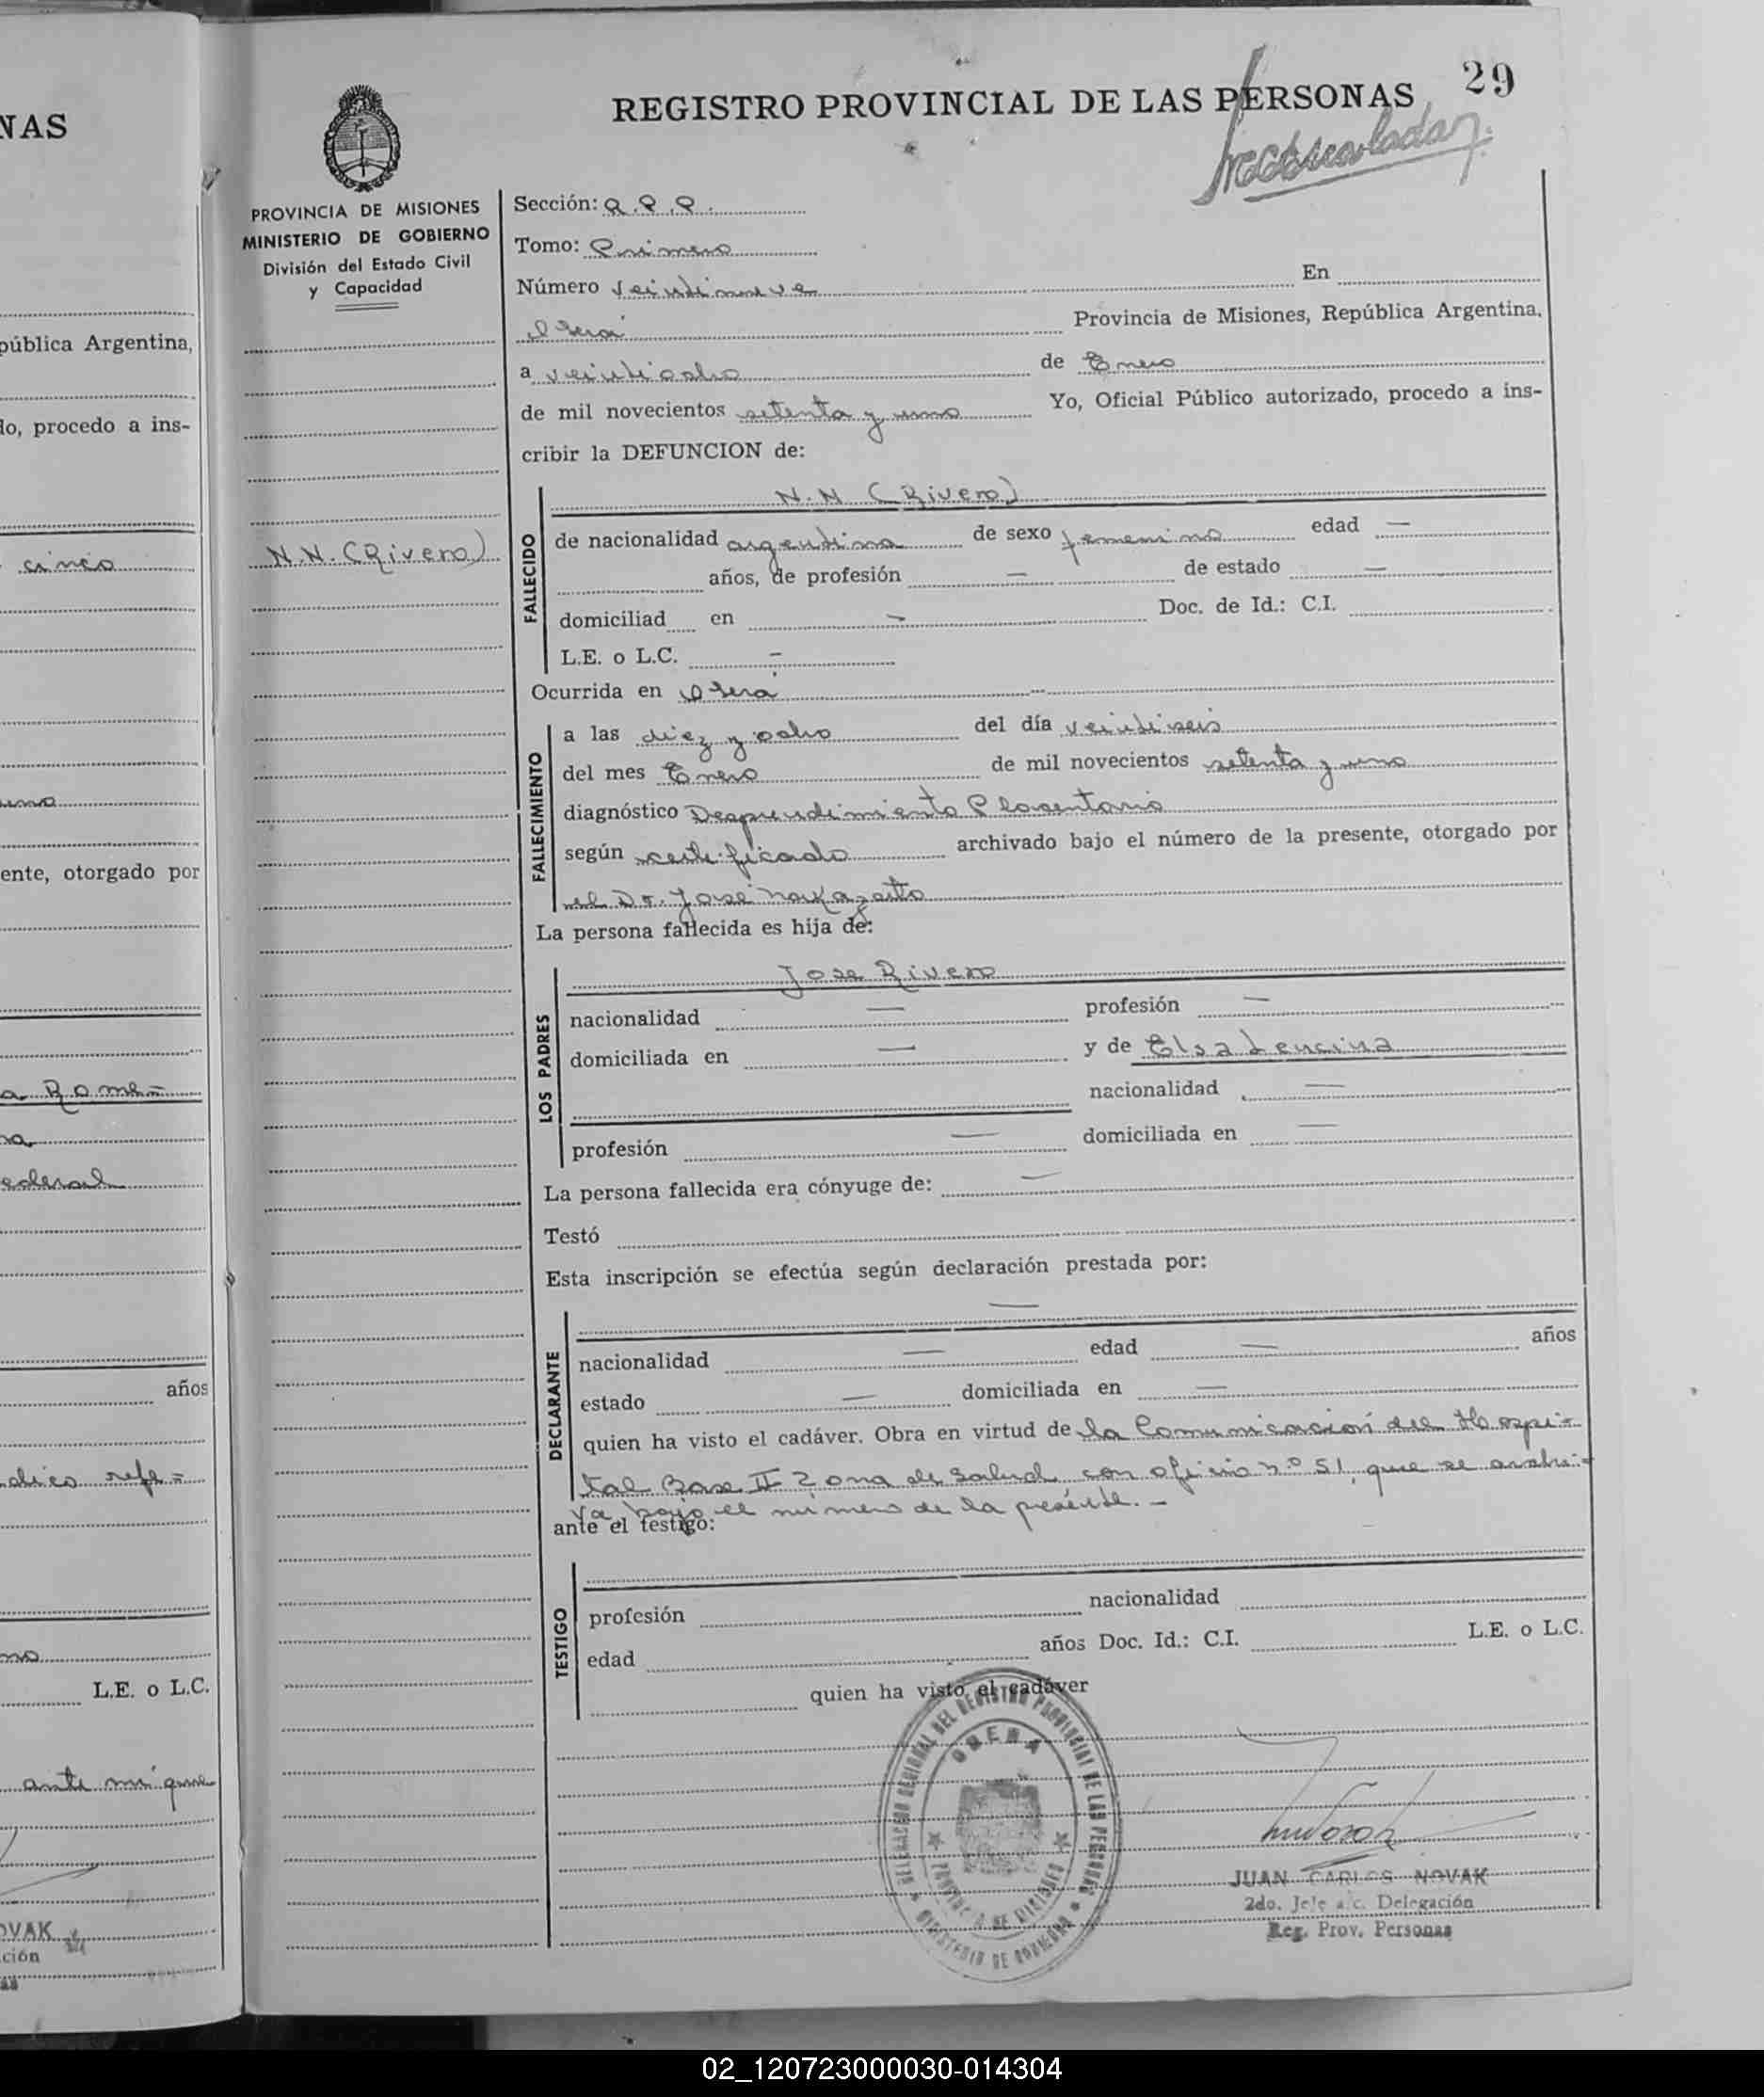 NAS
pública Argentina,
do, procedo a ins-
cinco
uno
ente, otorgado por
a Rome=
na
ederal
años
dico refe=
no
L.E. o L.C.
ante mi que
OVAK
ción
as
29
REGISTRO PROVINCIAL DE LAS PERSONAS
PROVINCIA DE MISIONES
MINISTERIO DE GOBIERNO
División del Estado Civil
y Capacidad
N.N. (Rivero)
Sección:
Tomo: Primero
Número veintinueve En
Oberá Provincia de Misiones, República Argentina,
a veintiocho de Enero
de mil novecientos setenta y uno Yo, Oficial Público autorizado, procedo a ins-
cribir la DEFUNCION de:
FALLECIDO
N.N (Rivero)
de nacionalidad argentina de sexo femenino edad —
años, de profesión — de estado —
domiciliad en — Doc. de Id.: C.I.
L.E. o L.C. —
Ocurrida en Oberá
FALLECIMIENTO
a las diez y ocho del día veintiseis
del mes Enero de mil novecientos setenta y uno
diagnóstico Desprendimiento Placentario
según certificado archivado bajo el número de la presente, otorgado por
el Dr. José
La persona fallecida es hija de:
LOS PADRES
Jose Rivero
nacionalidad — profesión —
domiciliada en — y de Elsa Lencina
nacionalidad —
profesión — domiciliada en —
La persona fallecida era cónyuge de: —
Testó
Esta inscripción se efectúa según declaración prestada por:
DECLARANTE
—
nacionalidad — edad — años
estado — domiciliada en —
quien ha visto el cadáver. Obra en virtud de la Comunicación del Hospi=
tal Base II Zona de Salud con oficio nº 51, que se archi=
va bajo el numero de la presente. —
ante el testigo:
TESTIGO
profesión nacionalidad
edad años Doc. Id.: C.I. L.E. o L.C.
quien ha visto el cadáver
DELEGACION REGIONAL DEL REGISTRO PROVINCIAL DE LAS PERSONAS
OBERA
PROVINCIA DE MISIONES
MINISTERIO DE GOBIERNO
JUAN CARLOS NOVAK
2do. Jefe a/c. Delegación
Reg. Prov. Personas
02_120723000030-014304